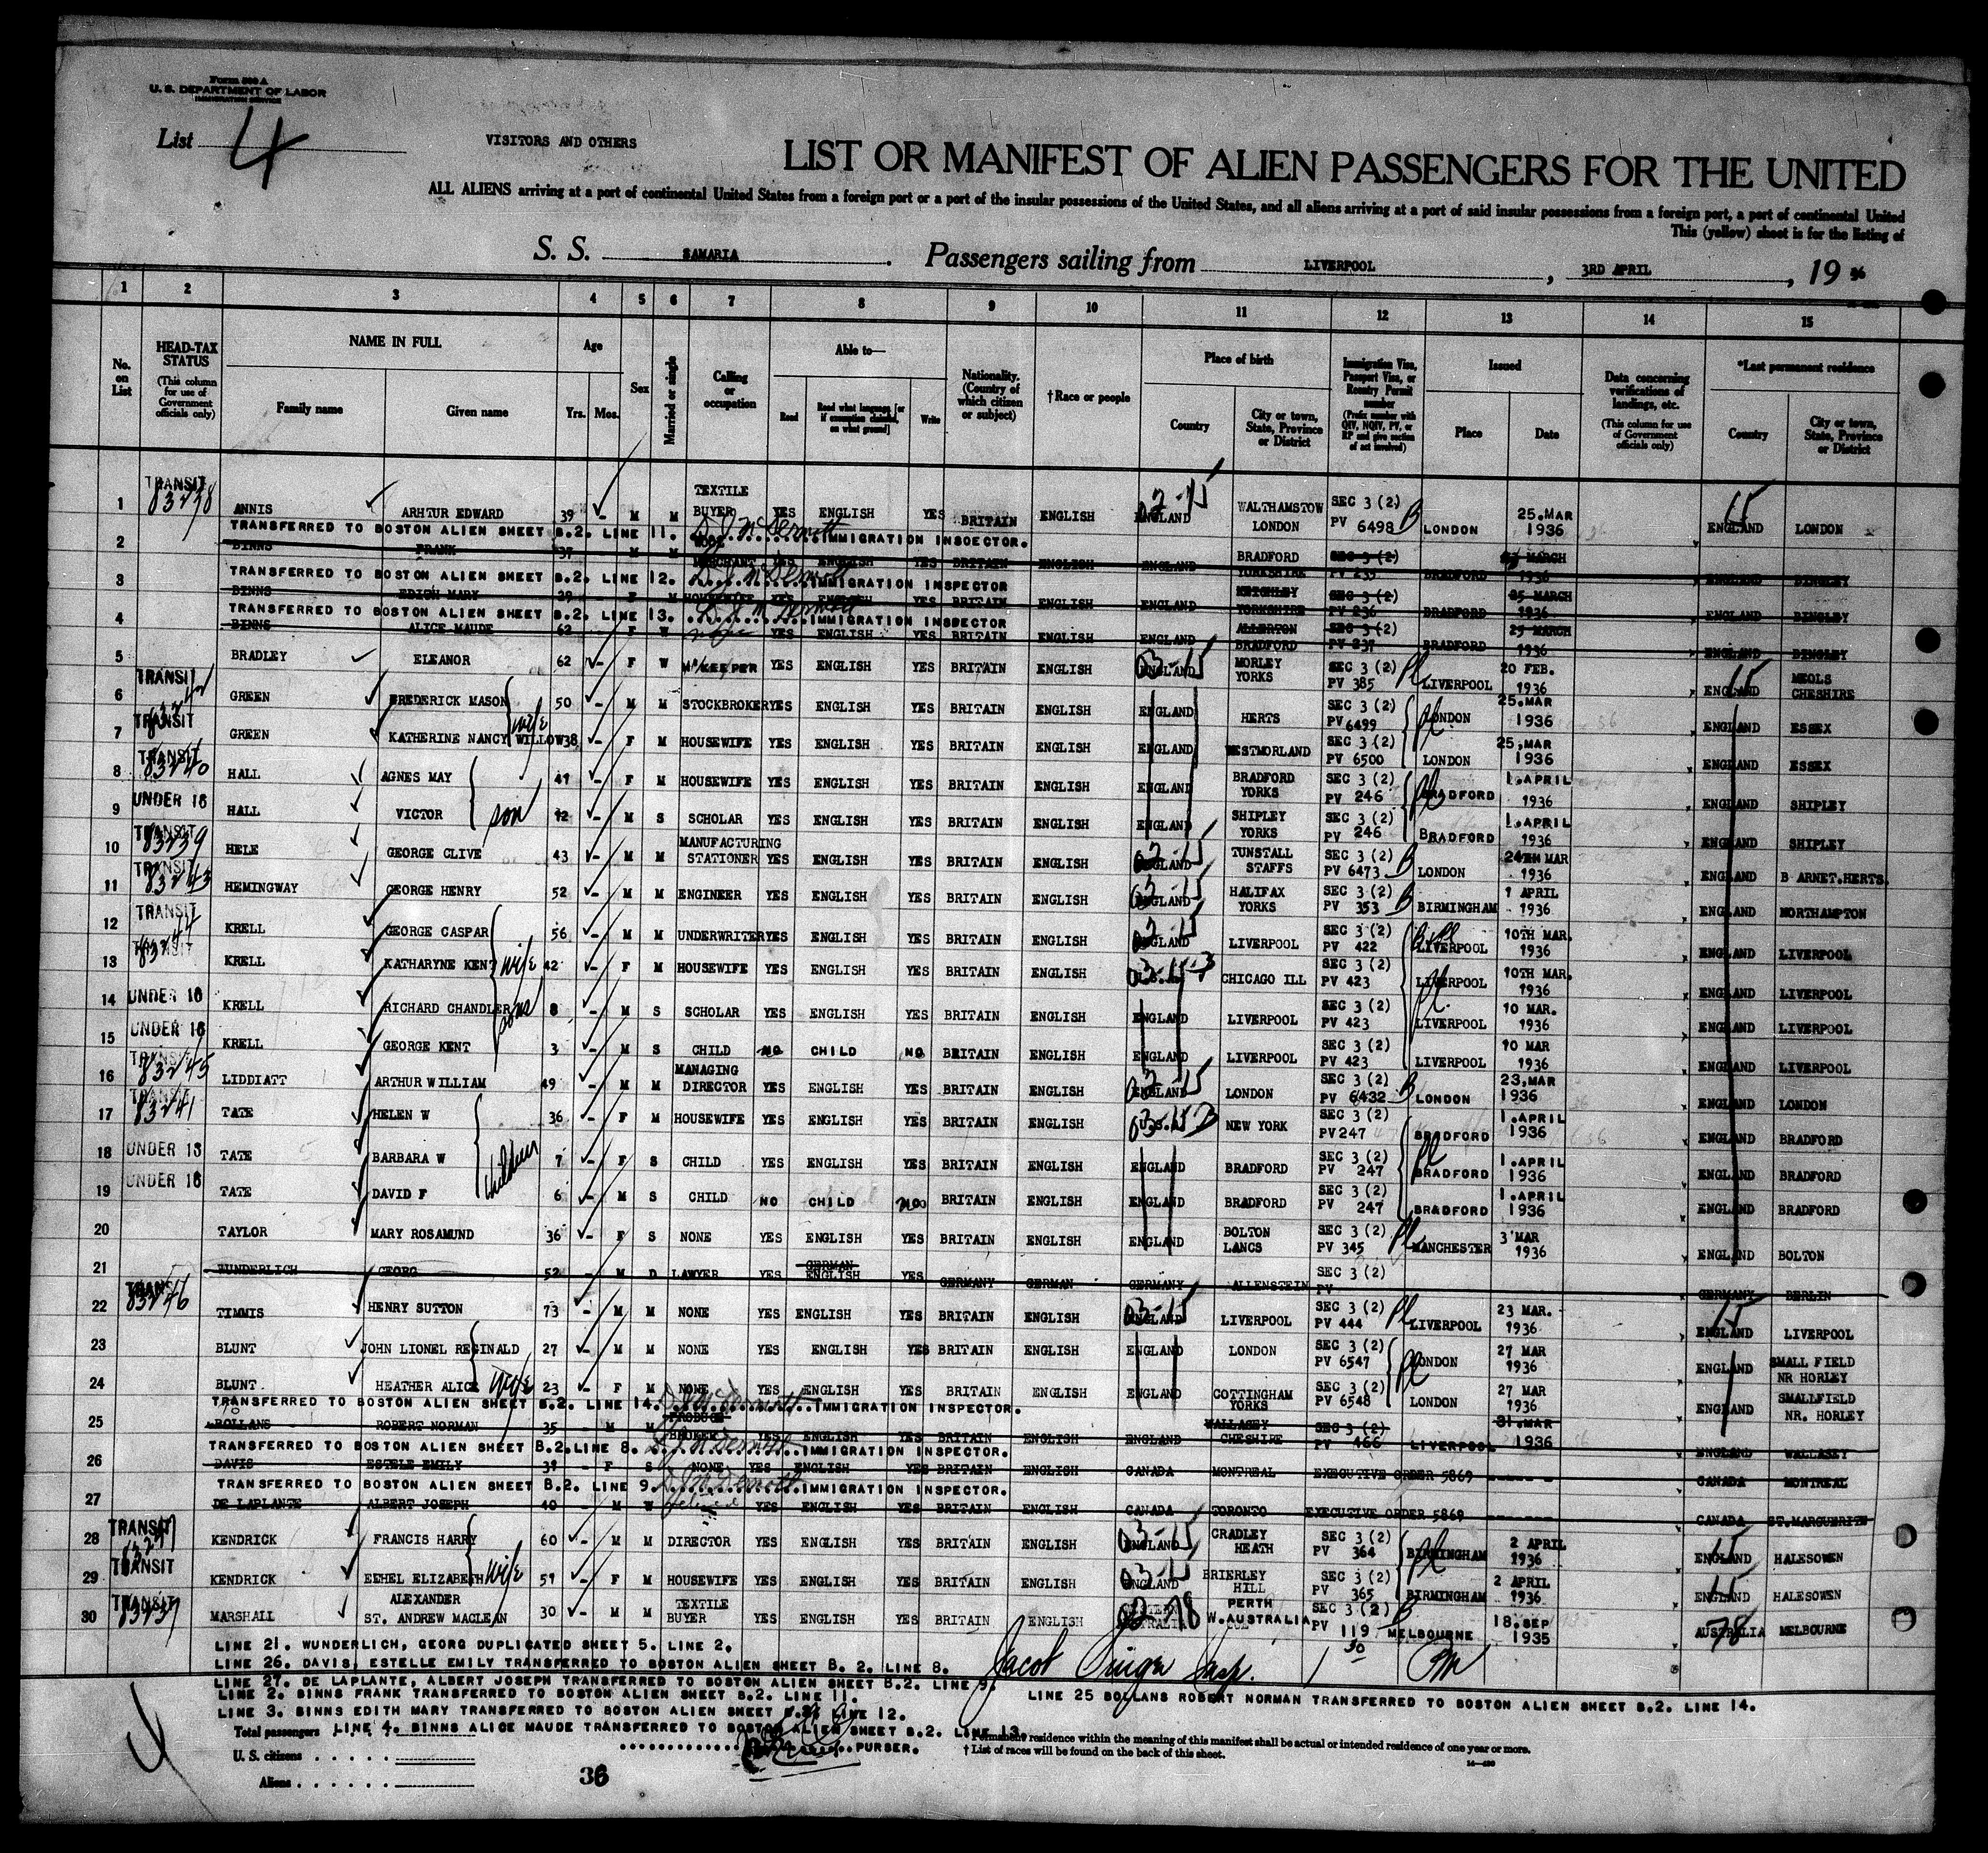 Form 500 A
U. S. DEPARTMENT OF LABOR
IMMIGRATION SERVICE
List 4
VISITORS AND OTHERS
LIST OR MANIFEST OF ALIEN PASSENGERS FOR THE UNITED
ALL ALIENS arriving at a port of continental United States from a foreign port or a port of the insular possessions of the United States, and all aliens arriving at a port of said insular possessions from a foreign port, a port of continental United
This (yellow) sheet is for the listing of
S. S. SAMARIA. Passengers sailing from LIVERPOOL, 3RD APRIL, 19 36
1 2 3 4 5 6 7 8 9 10 11 12 13 14 15
No. on List
HEAD-TAX STATUS (This column for use of Government officials only)
NAME IN FULL Family name Given name
Age Yrs. Mos.
Sex
Married or single
Calling or occupation
Able to— Read Read what language [or if exemption claimed, on what ground] Write
Nationality. (Country of which citizen or subject)
†Race or people
Place of birth Country City or town, State, Province or District
Immigration Visa, Passport Visa, or Reentry Permit number (Prefix number with QIV, NQIV, PV, or RP and give section of act involved)
Issued Place Date
Data concerning verifications of landings, etc. (This column for use of Government officials only)
*Last permanent residence Country City or town, State, Province or District
1 TRANSIT 83238 ANNIS ARHTUR EDWARD 39 - M M TEXTILE BUYER YES ENGLISH YES BRITAIN ENGLISH ENGLAND WALTHAMSTOW LONDON SEC 3 (2) PV 6498 LONDON 25.MAR 1936 ENGLAND LONDON
TRANSFERRED TO BOSTON ALIEN SHEET B.2. LINE 11. IMMIGRATION INSOECTOR.
2 BINNS FRANK 37 M M MERCHANT YES ENGLISH YES BRITAIN ENGLISH ENGLAND BRADFORD YORKSHIRE SEC 3 (2) PV 235 BRADFORD MARCH 1936 ENGLAND BINGLEY
TRANSFERRED TO BOSTON ALIEN SHEET B.2. LINE 12. IMMIGRATION INSPECTOR
3 BINNS EDIGH MARY 29 F M HOUSEWIFE YES ENGLISH YES BRITAIN ENGLISH ENGLAND KEIGHLEY YORKSHIRE SEC 3 (2) PV 236 BRADFORD 25 MARCH 1936 ENGLAND BINGLEY
TRANSFERRED TO BOSTON ALIEN SHEET B.2. LINE 13. IMMIGRATION INSPECTOR
4 BINNS ALICE MAUDE 62 F W none YES ENGLISH YES BRITAIN ENGLISH ENGLAND ALLERTON BRADFORD SEC 3 (2) PV 237 BRADFORD 25 MARCH 1936 ENGLAND BINGLEY
5 BRADLEY ELEANOR 62 - F W H'KEEPER YES ENGLISH YES BRITAIN ENGLISH ENGLAND MORLEY YORKS SEC 3 (2) PV 385 LIVERPOOL 20 FEB. 1936 ENGLAND MEOLS CHESHIRE
6 TRANSIT GREEN FREDERICK MASON 50 - M M STOCKBROKER YES ENGLISH YES BRITAIN ENGLISH ENGLAND HERTS SEC 3 (2) PV 6499 LONDON 25.MAR 1936 ENGLAND ESSEX
7 TRANSIT GREEN KATHERINE NANCY WILLOW wife 38 - F M HOUSEWIFE YES ENGLISH YES BRITAIN ENGLISH ENGLAND WESTMORLAND SEC 3 (2) PV 6500 LONDON 25,MAR 1936 ENGLAND ESSEX
8 TRANSIT 83240 HALL AGNES MAY 41 - F M HOUSEWIFE YES ENGLISH YES BRITAIN ENGLISH ENGLAND BRADFORD YORKS SEC 3 (2) PV 246 BRADFORD 1.APRIL 1936 ENGLAND SHIPLEY
9 UNDER 16 HALL VICTOR son 12 - M S SCHOLAR YES ENGLISH YES BRITAIN ENGLISH ENGLAND SHIPLEY YORKS SEC 3 (2) PV 246 BRADFORD 1.APRIL 1936 ENGLAND SHIPLEY
10 TRANSIT 83239 HELE GEORGE CLIVE 43 - M M MANUFACTURING STATIONER YES ENGLISH YES BRITAIN ENGLISH ENGLAND TUNSTALL STAFFS SEC 3 (2) PV 6473 LONDON 24TH MAR 1936 ENGLAND BARNET.HERTS.
11 TRANSIT 83243 HEMINGWAY GEORGE HENRY 52 - M M ENGINEER YES ENGLISH YES BRITAIN ENGLISH ENGLAND HALIFAX YORKS SEC 3 (2) PV 353 BIRMINGHAM 1 APRIL 1936 ENGLAND NORTHAMPTON
12 TRANSIT 83244 KRELL GEORGE CASPAR 56 - M M UNDERWRITER YES ENGLISH YES BRITAIN ENGLISH ENGLAND LIVERPOOL SEC 3 (2) PV 422 LIVERPOOL 10TH MAR. 1936 ENGLAND LIVERPOOL
13 TRANSIT KRELL KATHARYNE KENT wife 42 - F M HOUSEWIFE YES ENGLISH YES BRITAIN ENGLISH CHICAGO ILL SEC 3 (2) PV 423 LIVERPOOL 10TH MAR. 1936 ENGLAND LIVERPOOL
14 UNDER 16 KRELL RICHARD CHANDLER sons 8 - M S SCHOLAR YES ENGLISH YES BRITAIN ENGLISH ENGLAND LIVERPOOL SEC 3 (2) PV 423 LIVERPOOL 10 MAR. 1936 ENGLAND LIVERPOOL
15 UNDER 16 KRELL GEORGE KENT 3 - M S CHILD NO CHILD NO BRITAIN ENGLISH ENGLAND LIVERPOOL SEC 3 (2) PV 423 LIVERPOOL 10 MAR 1936 ENGLAND LIVERPOOL
16 TRANSIT 83245 LIDDIATT ARTHUR WILLIAM 49 - M M MANAGING DIRECTOR YES ENGLISH YES BRITAIN ENGLISH ENGLAND LONDON SEC 3 (2) PV 6432 LONDON 23,MAR 1936 ENGLAND LONDON
17 TRANSIT 83241 TATE HELEN W 36 - F M HOUSEWIFE YES ENGLISH YES BRITAIN ENGLISH U.S. NEW YORK SEC 3 (2) PV 247 BRADFORD 1.APRIL 1936 ENGLAND BRADFORD
18 UNDER 16 TATE BARBARA W children 7 - F S CHILD YES ENGLISH YES BRITAIN ENGLISH ENGLAND BRADFORD SEC 3 (2) PV 247 BRADFORD 1.APRIL 1936 ENGLAND BRADFORD
19 UNDER 16 TATE DAVID F 6 - M S CHILD NO CHILD NO BRITAIN ENGLISH ENGLAND BRADFORD SEC 3 (2) PV 247 BRADFORD 1.APRIL 1936 ENGLAND BRADFORD
20 TAYLOR MARY ROSAMUND 36 - F S NONE YES ENGLISH YES BRITAIN ENGLISH ENGLAND BOLTON LANCS SEC 3 (2) PV 345 MANCHESTER 3'MAR 1936 ENGLAND BOLTON
21 WUNDERLICH GEORG 52 - M D LAWYER YES GERMAN ENGLISH YES GERMANY GERMAN GERMANY ALLENSTEIN SEC 3 (2) PV GERMANY BERLIN
22 TRANSIT 83246 TIMMIS HENRY SUTTON 73 - M M NONE YES ENGLISH YES BRITAIN ENGLISH ENGLAND LIVERPOOL SEC 3 (2) PV 444 LIVERPOOL 23 MAR. 1936 ENGLAND LIVERPOOL
23 BLUNT JOHN LIONEL REGINALD 27 - M M NONE YES ENGLISH YES BRITAIN ENGLISH ENGLAND LONDON SEC 3 (2) PV 6547 LONDON 27 MAR 1936 ENGLAND SMALL FIELD NR HORLEY
24 BLUNT. HEATHER ALICE wife 23 - F M NONE YES ENGLISH YES BRITAIN ENGLISH ENGLAND COTTINGHAM YORKS SEC 3 (2) PV 6548 LONDON 27 MAR 1936 ENGLAND SMALLFIELD NR. HORLEY
TRANSFERRED TO BOSTON ALIEN SHEET B.2. LINE 14. IMMIGRATION INSPECTOR.
25 BOLLANS ROBERT NORMAN 35 - M M PRODUCE BROKER YES ENGLISH YES BRITAIN ENGLISH ENGLAND WALLASEY CHESHIRE SEC 3 (2) PV 466 LIVERPOOL 31.MAR 1936 ENGLAND WALLASEY
TRANSFERRED TO BOSTON ALIEN SHEET B.2.LINE 8. IMMIGRATION INSPECTOR.
26 DAVIS ESTELE EMILY 39 - F S NONE YES ENGLISH YES BRITAIN ENGLISH CANADA MONTREAL EXECUTIVE ORDER 5869 CANADA MONTREAL
TRANSFERRED TO BOSTON ALIEN SHEET B.2. LINE 9. IMMIGRATION INSPECTOR.
27 DE LAPLANTE ALBERT JOSEPH 40 - M W YES ENGLISH YES BRITAIN ENGLISH CANADA TORONTO EXECUTIVE ORDER 5869 CANADA ST.MARGUERITE
28 TRANSIT KENDRICK FRANCIS HARRY 60 - M M DIRECTOR YES ENGLISH YES BRITAIN ENGLISH ENGLAND CRADLEY HEATH SEC 3 (2) PV 364 BIRMINGHAM 2 APRIL 1936 ENGLAND HALESOWEN
29 TRANSIT KENDRICK EEHEL ELIZABETH wife 51 - F M HOUSEWIFE YES ENGLISH YES BRITAIN ENGLISH ENGLAND BRIERLEY HILL SEC 3 (2) PV 365 BIRMINGHAM 2 APRIL 1936 ENGLAND HALESOWEN
30 TRANSIT 83237 MARSHALL ALEXANDER ST. ANDREW MACLEAN 30 - M M TEXTILE BUYER YES ENGLISH YES BRITAIN ENGLISH PERTH W.AUSTRALIA SEC 3 (2) PV 119 MELBOURNE 18.SEP 1935 AUSTRALIA MELBOURNE
LINE 21. WUNDERLICH, GEORG DUPLICATED SHEET 5. LINE 2.
LINE 26. DAVIS, ESTELLE EMILY TRANSFERRED TO BOSTON ALIEN SHEET B. 2. LINE 8.
LINE 27. DE LAPLANTE, ALBERT JOSEPH TRANSFERRED TO BOSTON ALIEN SHEET B.2. LINE 9.
LINE 2. BINNS FRANK TRANSFERRED TO BOSTON ALIEN SHEET B.2. LINE 11.
LINE 25 BOLLANS ROBERT NORMAN TRANSFERRED TO BOSTON ALIEN SHEET B.2. LINE 14.
LINE 3. BINNS EDITH MARY TRANSFERRED TO BOSTON ALIEN SHEET B.2. LINE 12.
Total passengers LINE 4. BINNS ALICE MAUDE TRANSFERRED TO BOSTON ALIEN SHEET B.2. LINE 13.
PURSER.
*Permanent residence within the meaning of this manifest shall be actual or intended residence of one year or more.
U. S. citizens
† List of races will be found on the back of this sheet.
Aliens
36